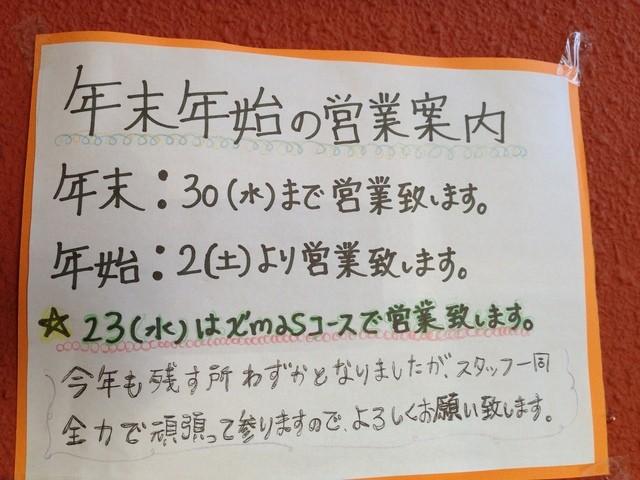 年末年始の営業案内
年末：30(水)まで営業致します。
年始：2(土)より営業致します。
☆23(水)はX'masコースで営業致します。
今年も残す所わずかとなりましたが、スタッフ一同
全力で頑張って参りますので、よろしくお願い致します。